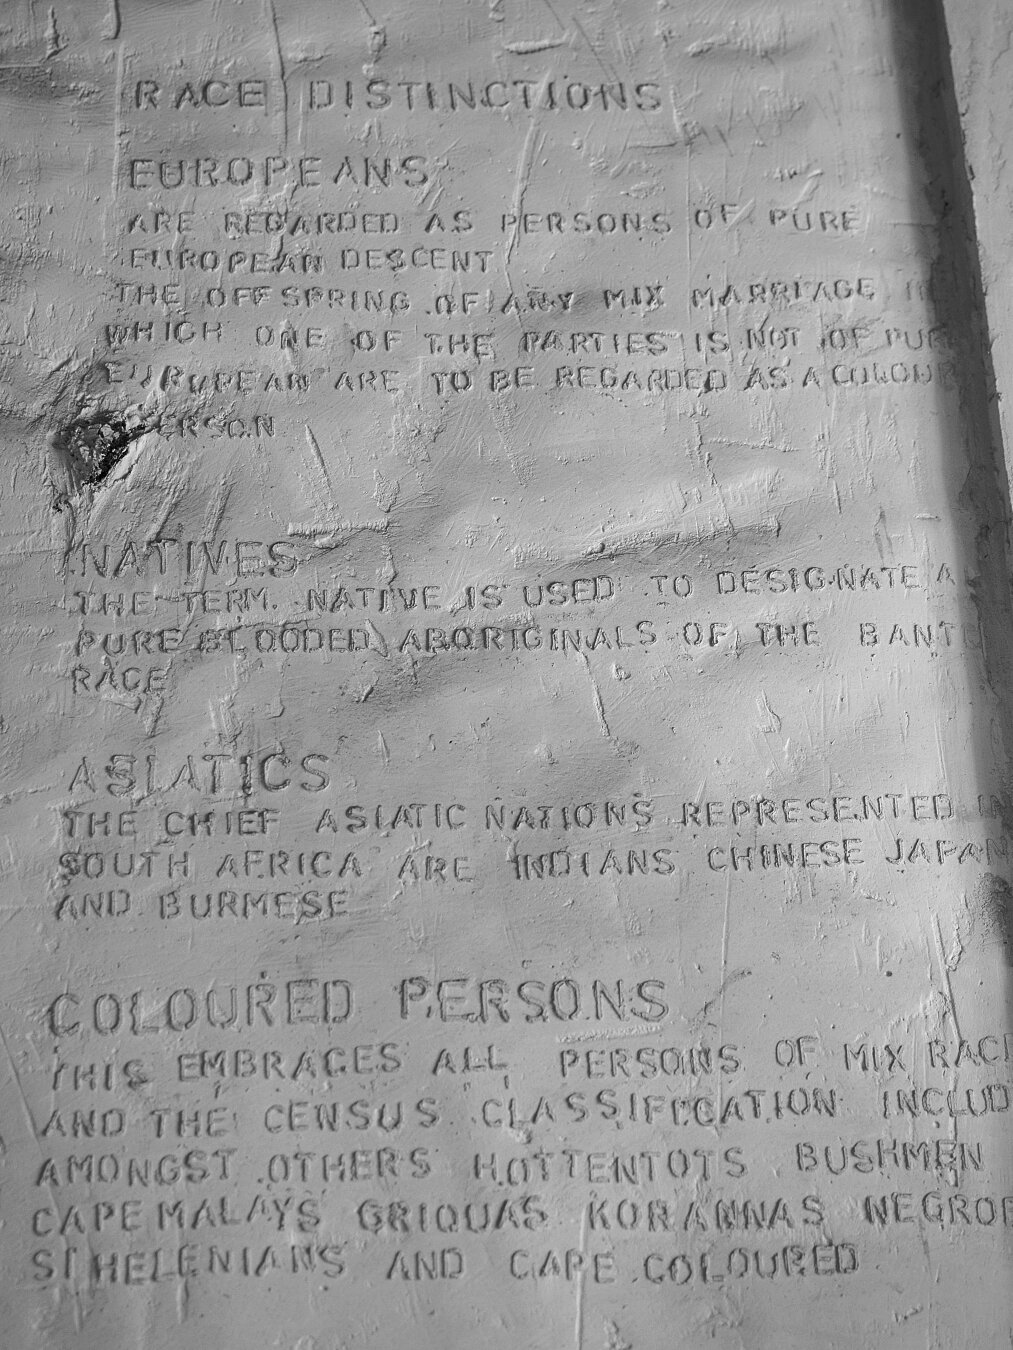 RACE DISTINCTIONS
EUROPEANS
ARE REGARDED AS PERSONS OF PURE
EUROPEAN DESCENT
THE OFFSPRING OF ANY MIX MARRIAGE
WHICH ONE OF THE PARTIES IS NOT OF PUR
EUROPEAN ARE TO BE REGARDED AS A COLOUR
ERSON
NATIVES
THE TERM NATIVE IS USED TO DESIGNATE A
PURE BLOODED ABORIGINALS OF THE BANT
RACE
ASIATICS
THE CHIEF ASIATIC NATIONS REPRESENTED IN
SOUTH AFRICA ARE INDIANS CHINESE JAPAN
AND BURMESE
COLOURED PERSONS
THIS EMBRACES ALL PERSONS OF MIX RAC
AND THE CENSUS CLASSIFICATION INCLUD
AMONGST OTHERS HOTTENTOTS BUSHMEN
CAPE MALAYS GRIQUAS KORANNAS NEGROE
ST HELENIANS AND CAPE COLOURED